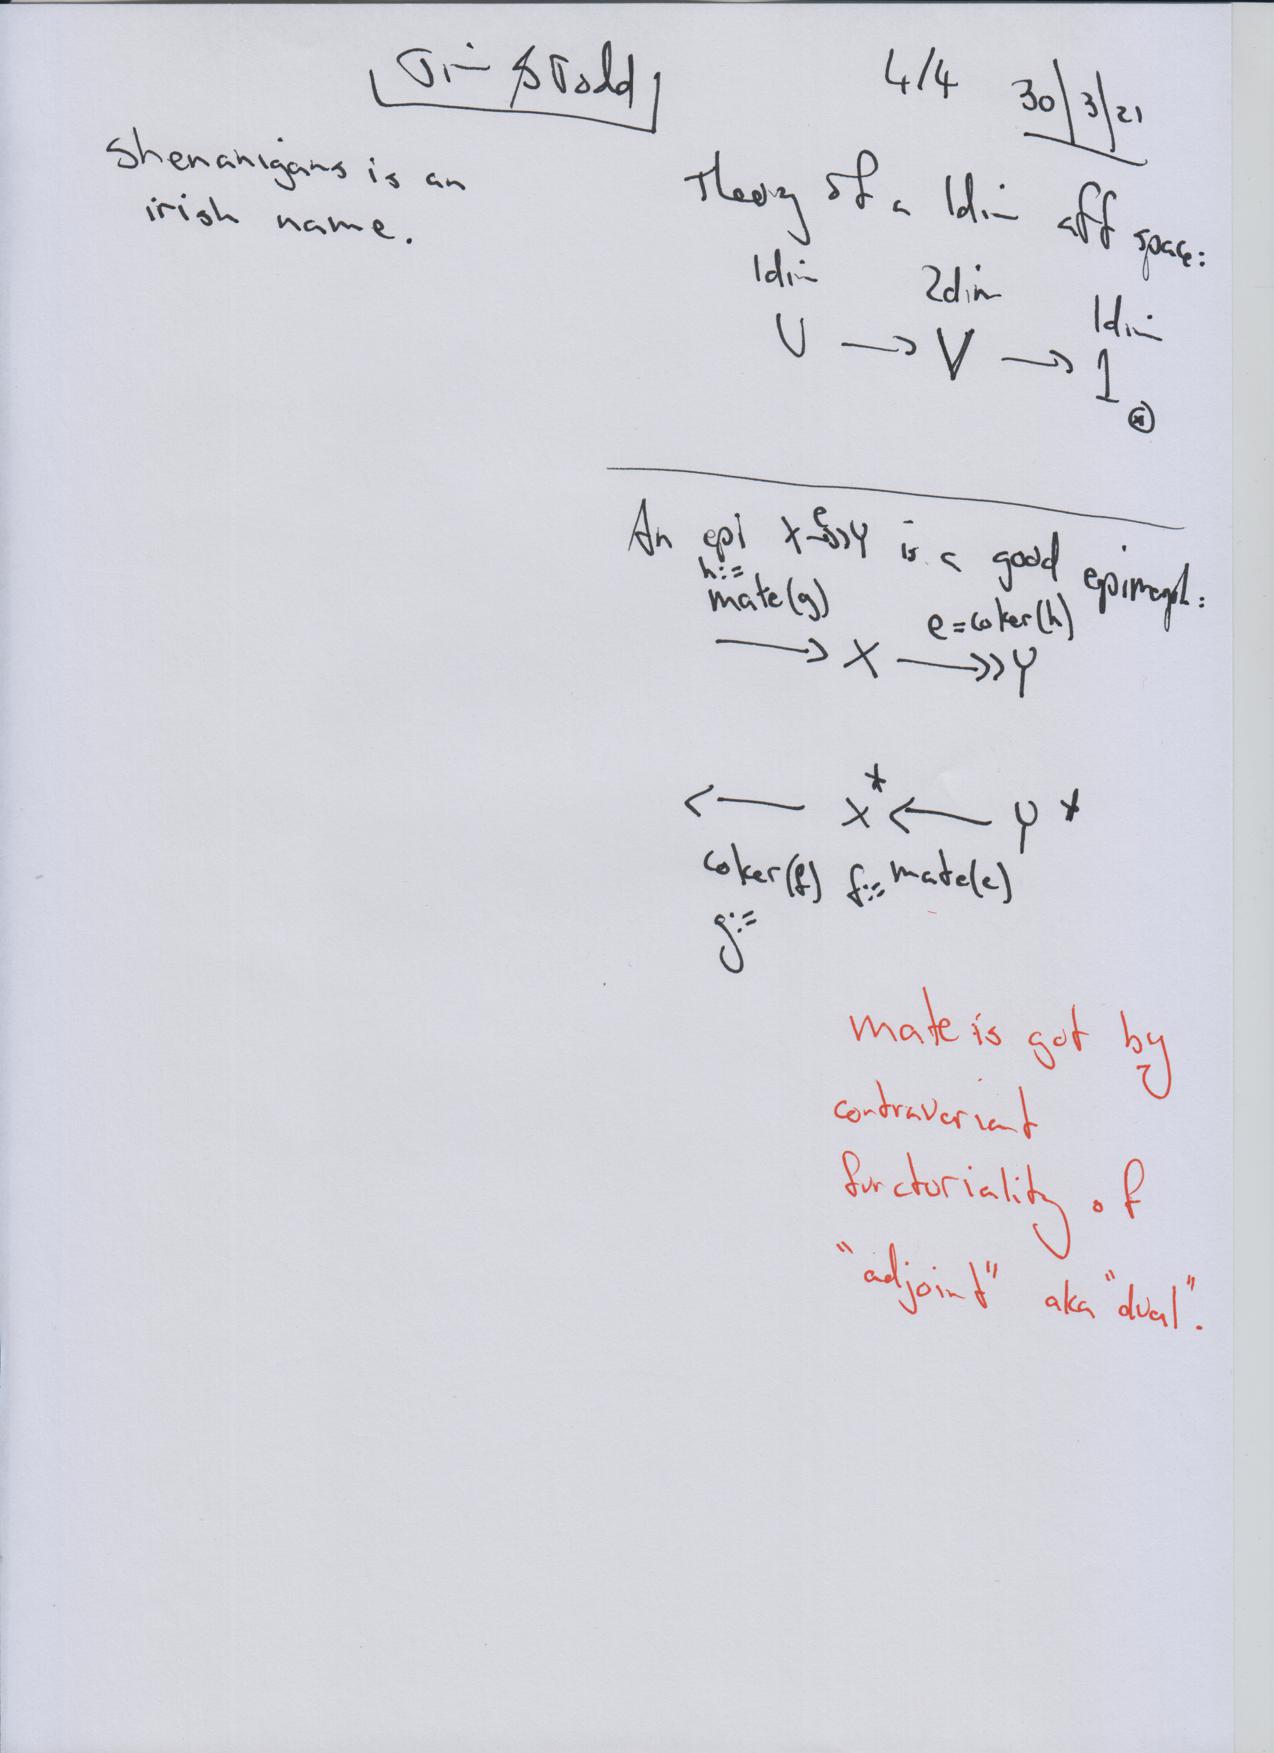 Jim & Todd
4/4 30/3/21
shenanigans is an
irish name.
Theory of a 1dim aff space:
1dim 2dim 1dim
U → V → 1
⊗
An epi X ↠ Y is a good epimorph:
e
h:=
mate(g) e=coker(h)
→ X ↠ Y
← X* ← Y*
coker(f) f:= mate(e)
g:=
mate is got by
contravariant
functoriality of
"adjoint" aka "dual".